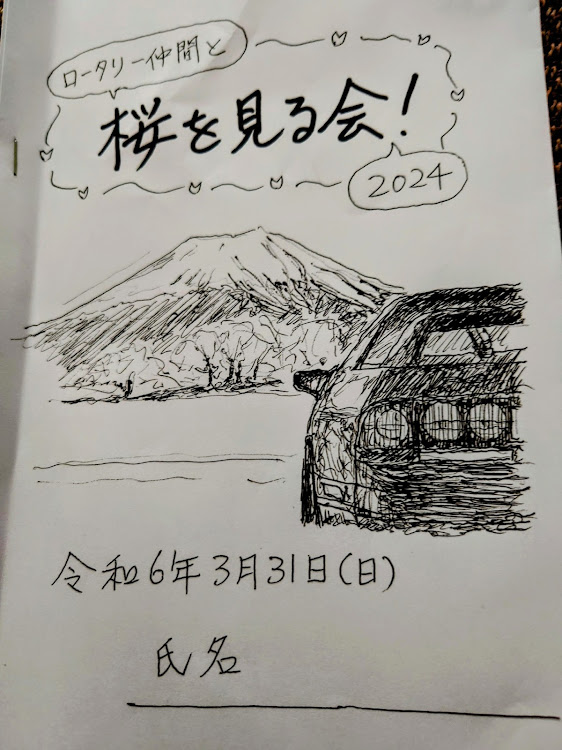 ロータリー仲間と
桜を見る会!
2024
令和6年3月31日(日)
氏名